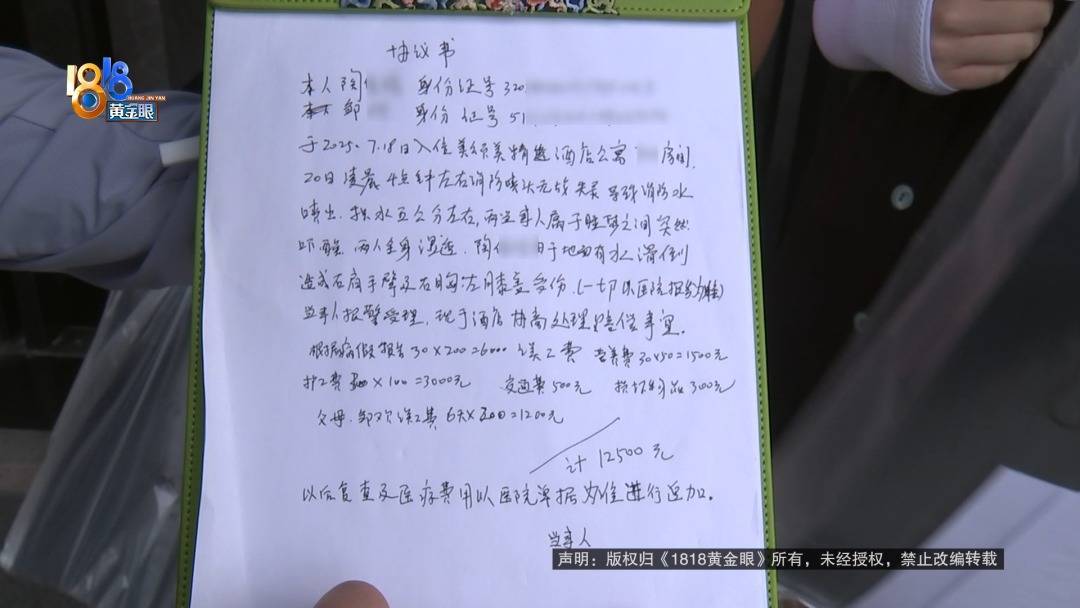 1818
HUANG JIN YAN
黄金眼
协议书
本人陶 身份证号320
本人邹 身份证号51
于2025.7.18日入住美颂美精选酒店公寓 房间.
20日凌晨4点钟左右消防喷头无故失灵导致消防水
喷出.积水五公分左右,两当事人属于睡梦之间突然
吓醒.两人全身湿透.陶 由于地面有水滑倒
造成右肩手臂及右胸左膝盖受伤.(一切以医院报告为准)
当事人报警受理,现于酒店协商处理赔偿事宜.
根据病假报告30×200=6000 误工费 营养费30×50=1500元
护工费 ×100=3000元 交通费500元 损坏物品300元
父母.邹 误工费6天×200=1200元
计12500元
以后复查及医疗费用以医院单据为准进行追加.
当事人
声明:版权归《1818黄金眼》所有,未经授权,禁止改编转载